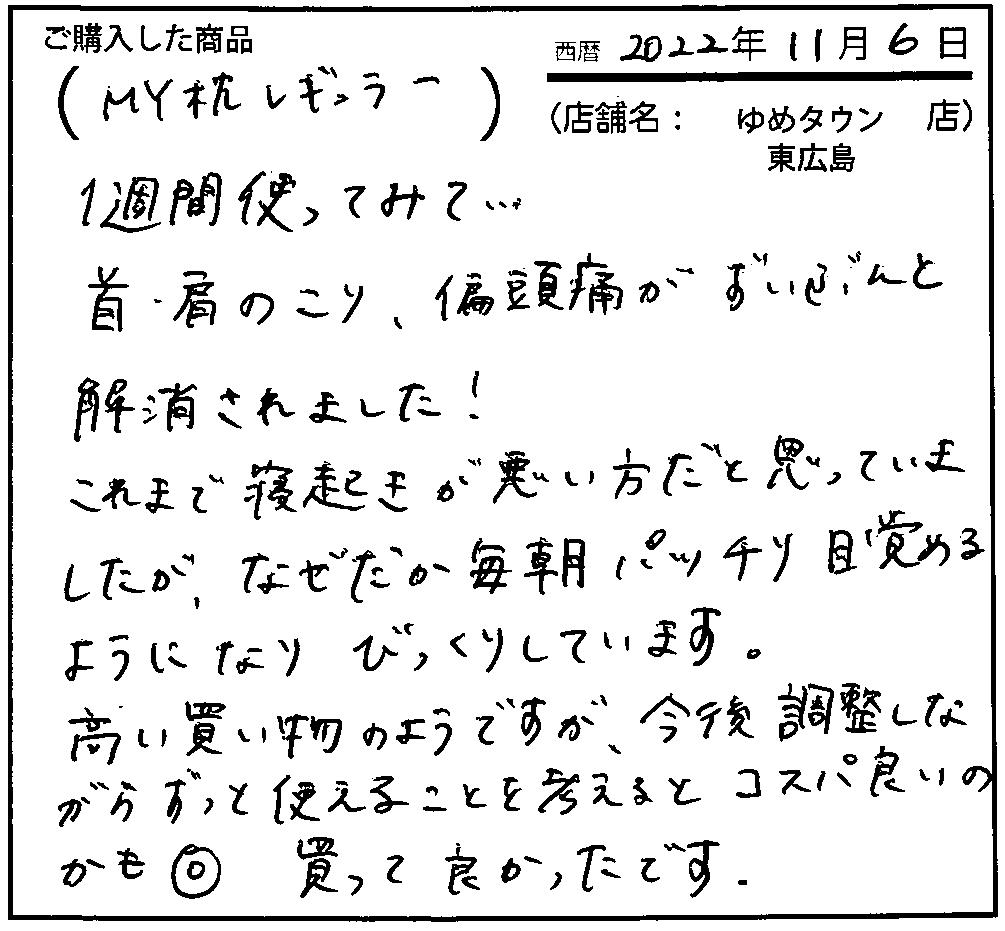 ご購入した商品
西暦 2022年 11月 6日
(MY枕レギュラー)
(店舗名： ゆめタウン 店)
東広島
1週間使ってみて…
首・肩のこり、偏頭痛が ずいぶんと
解消されました！
これまで寝起きが悪い方だと思っていま
したが、なぜだか毎朝パッチリ目覚める
ようになり びっくりしています。
高い買い物のようですが、今後調整しな
がらずっと使えることを考えるとコスパ良いの
かも◎ 買って良かったです.